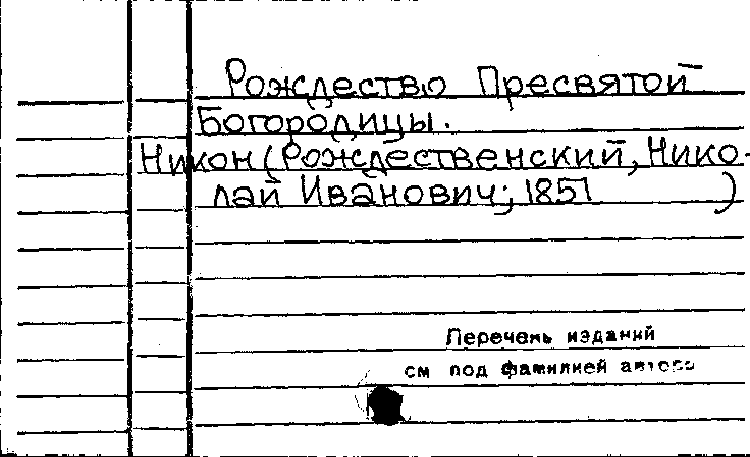 Рождество Пресвятой
Богородицы.
Никон (Рождественский, Нико-
лай Иванович; 1851 )
Перечень изданий
см под фамилией автора